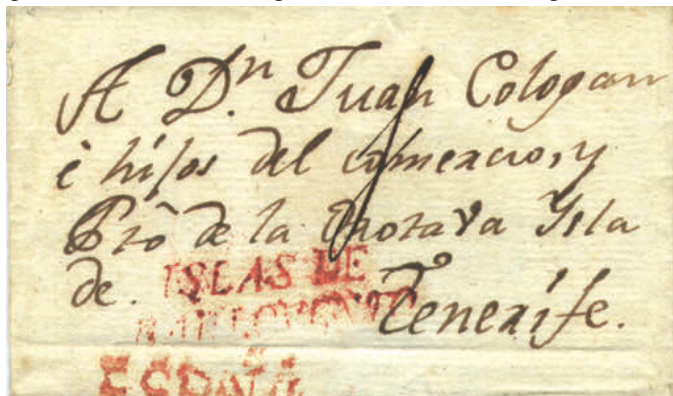 A Dn. Juan Cologan
è hijos del comercio, y
Pto de la Orotava Ysla
de. Tenerife.
ISLAS DE
BARLOVENTO
ESPAÑA